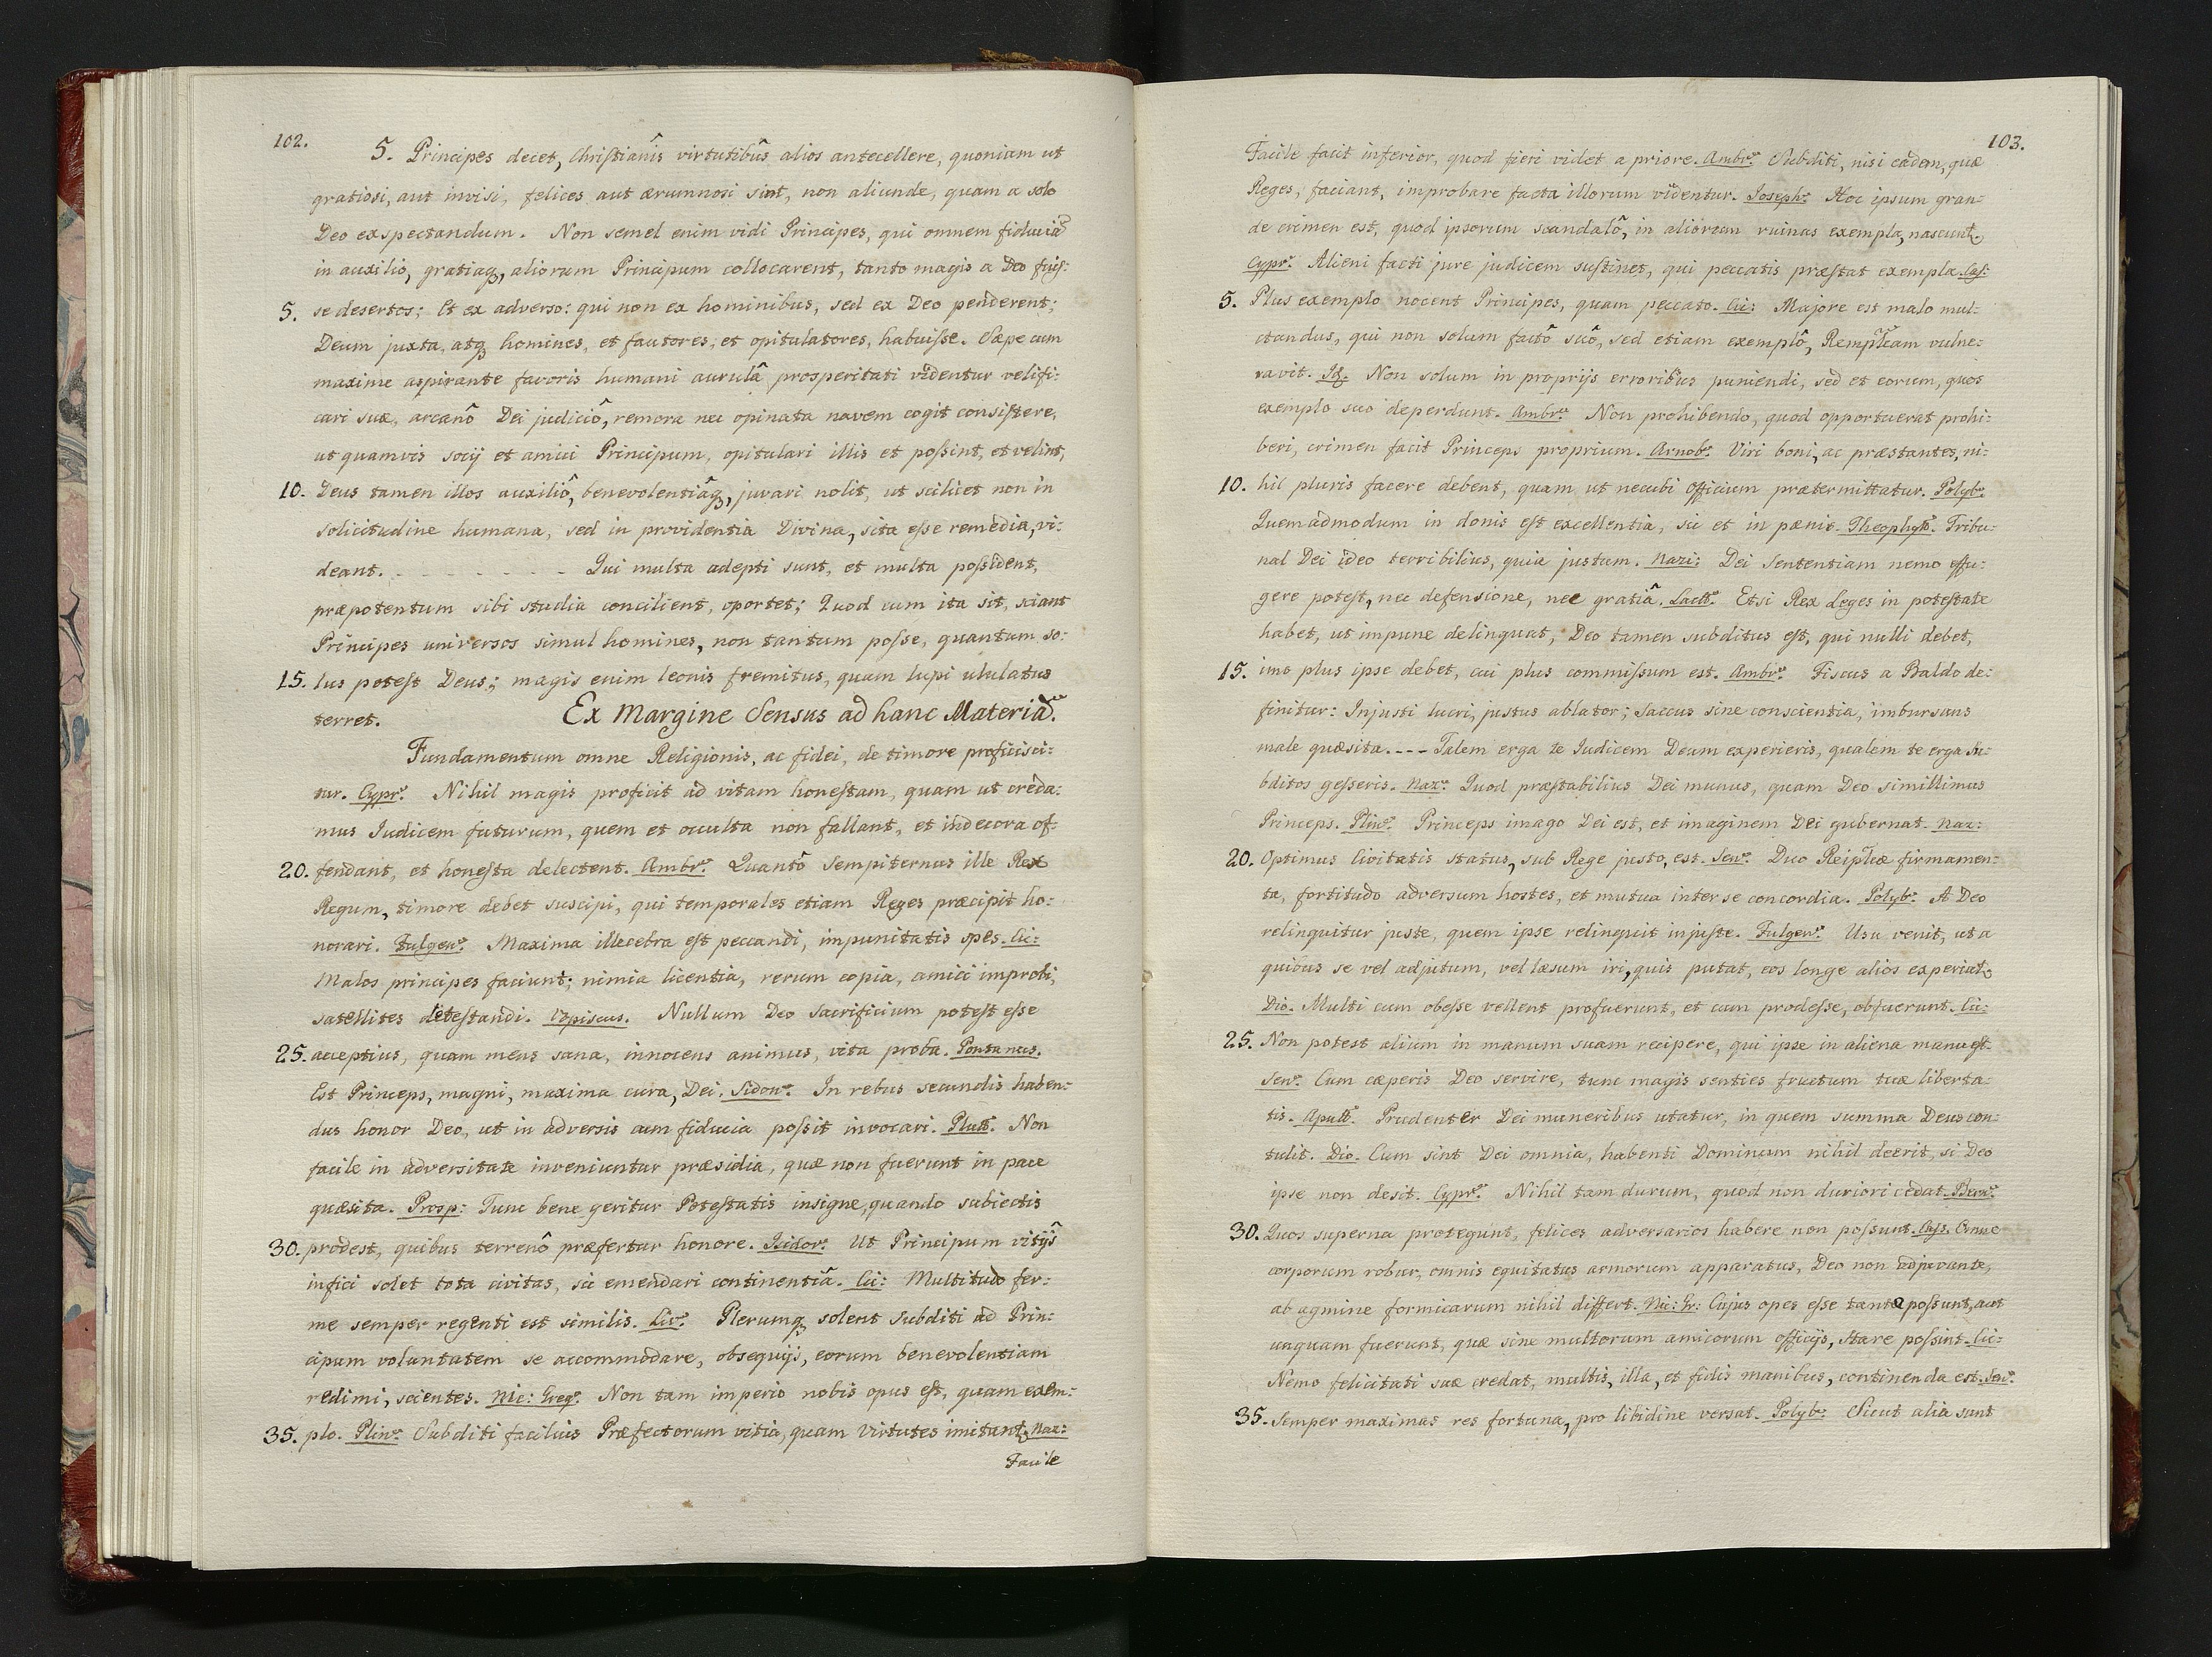 102.
5. Principes decet, Christianîs virtutibûs alios antecellere, quoniam ut
gratiosi, aut invisi, felices aut ærumnosi sint, non aliunde, quam a solo
Deo exspectandum. Non semel enim vidi Principes, qui omnem fiduciã
in auxilio, gratiaq₃, aliorum Principum collocarent, tanto magis a Deo fuiſ:
5. se desertos; Et ex adverso: qui non ex hominibus, sed ex Deo penderent;
Deum juxta, atq₃ homines, et fautores, et opitulatores, habuiſse. Sæpe cum
maxime aspirante favoris humani aurulâ prosperitati videntur velifi:
cari suæ, arcanô Dei judiciô, remora nec opinata navem cogit consiſtere,
ut quamvis socij et amici Principum, opitulari illis et poſsint, et velint,
10. Deus tamen illos auxiliô, benevolentiâq₃, juvari nolit, ut scilicet non in
solicitudine humana, sed in providentia Divina, sita eſse remedia, vi:
deant. - - - - - - - Qui multa adepti sunt, et multa poſsident,
præpotentum sibi studia concilient, oportet; Quod cum ita sit, sciant
Principes universos simul homines, non tantum poſse, quantum so:
15. lus poteſt Deus; magis enim leonis fremitus, quam lupi ululatus
terret. Ex Margine Sensus ad hanc Materiã.
Fundamentum omne Religionis, ac fidei, de timore proficisci:
tur. Cypr. Nihil magis proficit ad vitam honeſtam, quam ut creda:
mus Iudicem futurum, quem et occulta non fallant, et indecora of:
20. fendant, et honeſta delectent. Ambr. Quantô Sempiternus ille Rex
Regum, timore debet suscipi, qui temporales etiam Reges præcipit ho:
norari. Fulgen. Maxima illecebra eſt peccandi, impunitatis spes. Cic:
Malos principes faciunt; nimia licentia, rerum copia, amici improbi,
satellites deteſtandi. Vopiscus. Nullum Deo Sacrificium poteſt eſse
25. acceptius, quam mens sana, innocens animus, vita proba. Pontanus.
Est Princeps, magni, maxima cura, Dei. Sidon. In rebus secundis haben:
dus honor Deo, ut in adversis cum fiducia poſsit invocari. Plutt. Non
facile in adversitate inveniuntur præsidia, quæ non fuerunt in pace
quæsita. Prosp: Tunc bene geritur Poteſtatis insigne, quando subiectis
30. prodest, quibus terrenô præfertur honore. Isidor. Ut Principum vitijs
infici solet tota civitas, sic emendari continentiâ. Cic: Multitudo fer:
me semper regenti est similis. Liv. Plerumq₃ solent Subditi ad Prin:
cipum voluntatem se accommodare, obsequijs, eorum benevolentiam
redimi, scientes. Nic: Greg. Non tam imperio nobis opus eſt, quam exem:
35. plo. Plin. Subditi facilius Præfectorum vitia, quam Virtutes imitant₃. Naz:
Facile
103.
Facile facit inferior, quod fieri videt a priore. Ambr. Subditi, nisi eadem, quæ
Reges, faciant, improbare facta illorum videntur. Joseph. Hoc ipsum gran:
de crimen est, quod ipsorum scandalô, in aliorum ruinas exempla, nascunt₃.
Cypr. Alieni facti jure judicem suſtinet, qui peccatis præſtat exempla. Caſ:
5. Plus exemplo nocent Principes, quam peccato. Cic: Majore est malo mul:
ctandus, qui non solum factô suô, sed etiam exemplô, Remplcam vulne:
ravit. Id. Non solum in proprijs erroribus puniendi, sed et eorum, quos
exemplo suo deperdunt. Ambr. Non prohibendo, quod opportuerat prohi:
beri, crimen facit Princeps proprium. Arnob. Viri boni, ac præstantes, ni:
10. hil pluris facere debent, quam ut necubi Officium prætermittatur. Polyb.
Quemadmodum in donis eſt excellentia, sic et in pænis. Theophylt. Tribu:
nal Dei ideo terribilius, quia justum. Nazi: Dei Sententiam nemo effu:
gere poteſt, nec defensione, nec gratiâ. Lactt. Etsi Rex Leges in poteſtate
habet, ut impune delinquat, Deo tamen subditus eſt, qui nulli debet,
15. imo plus ipse debet, cui plus commiſsum est. Ambr. Fiscus a Baldo de:
finitur: Injusti lucri, justus ablator; Saccus sine conscientia, imbursans
male quæsita. - - - Talem erga te Iudicem Deum experieris, qualem te erga Su:
bditos geſseris. Naz. Quod præſtabilius Dei munus, quam Deo simillimus
Princeps. Plin. Princeps imago Dei est, et imaginem Dei gubernat. Naz:
20. Optimus Civitatis status, sub Rege justo, est. Sen. Duo Reiplcæ firmamen:
ta, fortitudo adversum hostes, et mutua inter se concordia. Polyb. A Deo
relinquitur juste, quem ipse relinquit injuſte. Fulgen. Usu venit, ut a
quibus se vel adjutum, vel læsum iri, quis putat, eos longe alios experiat₃.
Dio. Multi cum obeſse vellent profuerunt, et cum prodeſse, obfuerunt. Cic:
25. Non potest alium in manum suam recipere, qui ipse in aliena manu eſt.
Sen. Cum cæperis Deo servire, tunc magis senties fructum tuæ liberta:
tis. Apull. Prudenter Dei muneribus utatur, in quem summa Deus con:
tulit. Dio. Cum sint Dei omnia, habenti Dominum nihil deerit, si Deo
ipse non desit. Cypr. Nihil tam durum, quod non duriori cedat. Bern.
30. Quos superna protegunt, felices adversarios habere non poſsunt. Caſs. Omne
corporum robur, omnis equitatus armorum apparatus, Deo non adjuvante,
ab agmine formicarum nihil differt. Nic: Gr: Cujus opes eſse tantæ poſsunt, aut
unquam fuerunt, quæ sine multorum amicorum officijs, Stare poſsint. Cic:
Nemo felicitati suæ credat, multis, illa, et fidis manibus, continenda est. Sen.
35. Semper maximas res fortuna, pro libidine versat. Polyb. Sicut alia sunt